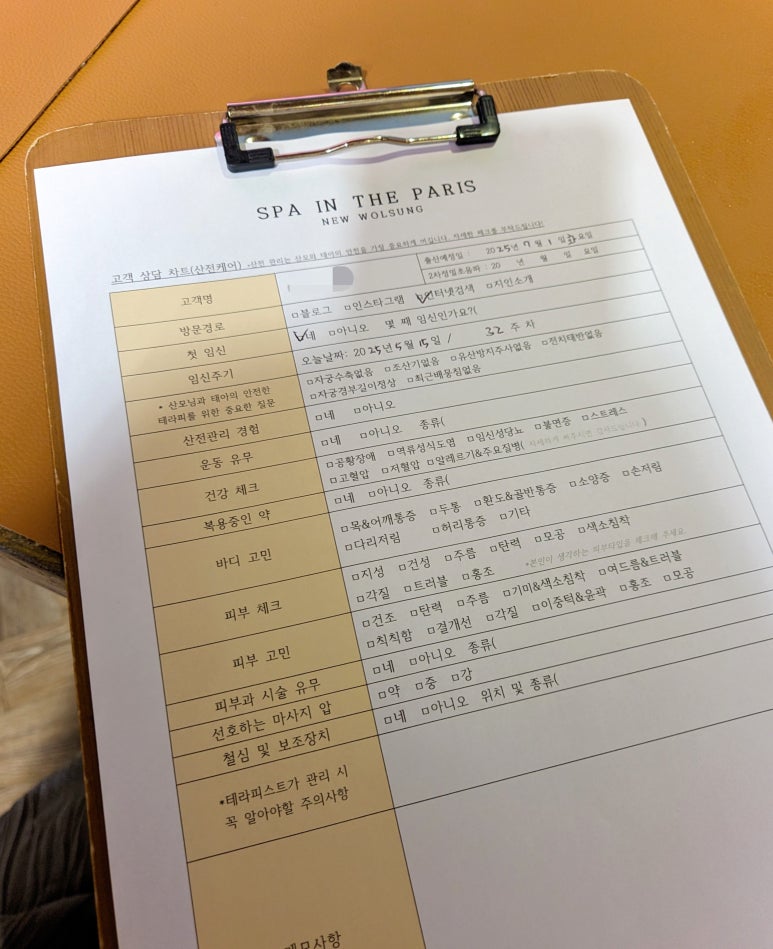 SPA IN THE PARIS
NEW WOLSUNG
고객 상담 차트(산전케어) *산전 관리는 산모와 태아의 안전을 가장 중요하게 여깁니다. 자세한 체크를 부탁드립니다!
고객명
출산예정일 : 2025년 7월 1일 화요일
2차정밀초음파 : 20 년 월 일 요일
방문경로 □블로그 □인스타그램 □인터넷검색 □지인소개
첫 임신 □네 □아니오 몇 째 임신인가요?(
임신주기 오늘날짜: 2025년 5월 15일 / 32 주 차
* 산모님과 태아의 안전한 테라피를 위한 중요한 질문
□자궁수축없음 □조산기없음 □유산방지주사없음 □전치태반없음
□자궁경부길이정상 □최근배뭉침없음
산전관리 경험 □네 □아니오
운동 유무 □네 □아니오 종류(
건강 체크 □공황장애 □역류성식도염 □임신성당뇨 □불면증 □스트레스
□고혈압 □저혈압 □알레르기&주요질병( 자세하게 써주시면 감사드립니다 )
복용중인 약 □네 □아니오 종류(
바디 고민 □목&어깨통증 □두통 □환도&골반통증 □소양증 □손저림
□다리저림 □허리통증 □기타
피부 체크 □지성 □건성 □주름 □탄력 □모공 □색소침착
□각질 □트러블 □홍조 *본인이 생각하는 피부타입을 체크해 주세요
피부 고민 □건조 □탄력 □주름 □기미&색소침착 □여드름&트러블
□칙칙함 □결개선 □각질 □이중턱&윤곽 □홍조 □모공
피부과 시술 유무 □네 □아니오 종류(
선호하는 마사지 압 □약 □중 □강
철심 및 보조장치 □네 □아니오 위치 및 종류(
*테라피스트가 관리 시
꼭 알아야할 주의사항
메모사항